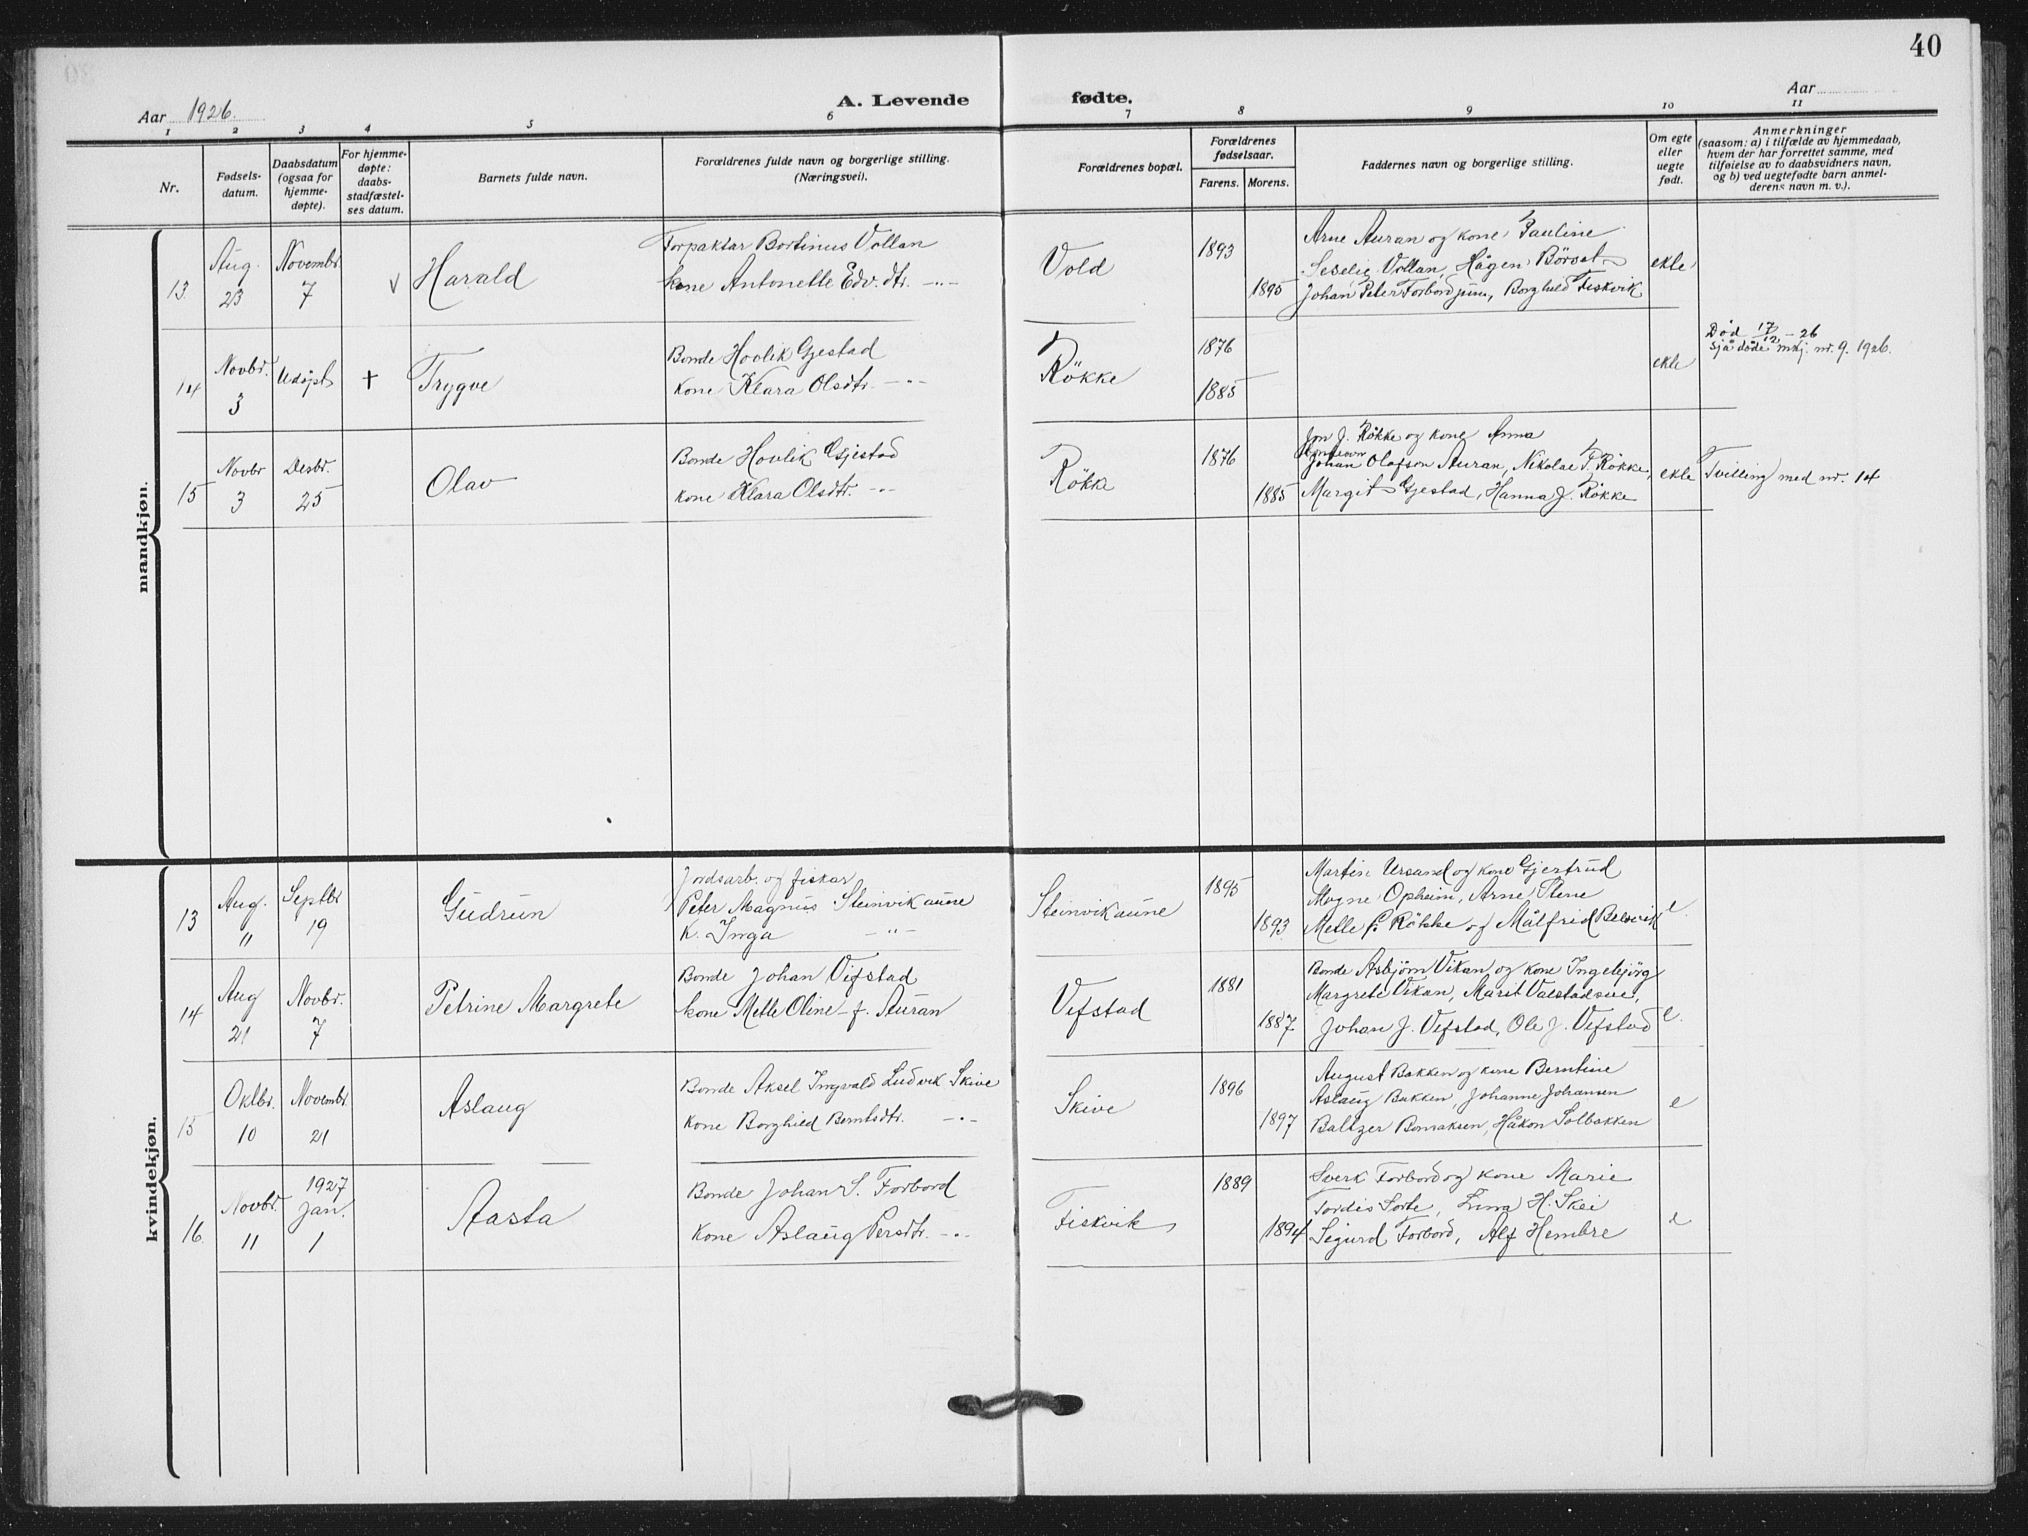 40
Aar 1926.
A. Levende fødte.
Aar
1 2 3 4 5 6 7 8 9 10 11
Nr.
Fødsels-
datum.
Daabsdatum
(ogsaa for
hjemme-
døpte).
For hjemme-
døpte:
daabs-
stadfæstel-
ses datum.
Barnets fulde navn.
Forældrenes fulde navn og borgerlige stilling.
(Næringsvei).
Forældrenes bopæl.
Forældrenes
fødselsaar.
Farens. Morens.
Faddernes navn og borgerlige stilling.
Om egte
eller
uegte
født.
Anmerkninger
(saasom: a) i tilfælde av hjemmedaab,
hvem der har forrettet samme, med
tilføielse av to daabsvidners navn,
og b) ved uegtefødte barn anmel-
derens navn m. v.).
mandkjøn.
13.
Aug.
23
Novembr.
7
V
Harald
Forpaktar Bortinus Vollan
kone Antonette Edv. dtr. -"-
Vold
1893
1895
Arne Auran og kone Pauline
Seselie Vollan, Hågen Börset
Johan Peter Forbord jun., Borghild Fiskvik
ekte
14
Novbr.
3
Udöpt
+
Trygve
Bonde Hovlik Gjestad
kone Klara Olsdtr. -"-
Rökke
1876
1885
ekte
Död 17/12 - 26
sjå döde mkj. nr. 9. 1926.
15
Novbr
3
Desbr.
25
Olav
Bonde Hovlik Gjestad
kone Klara Olsdtr. -"-
Rökke
1876
1885
Jon J. Rökke og kone Anna
Johan Olafson Auran, Nikolai F. Rökke,
Margit Gjestad, Hanna J. Rökke
ekte
Tvilling med nr. 14
kvindekjøn.
13
Aug.
11
Septbr
19
Gudrun
Jordsarb. og fiskar
Peter Magnus Steinvikaune
K. Inga -"-
Steinvikaune
1895
1893.
Martin Ursand og kone Gjertrud
Magne Opheim, Arne Stene
Mette P. Rökke og Målfrid Belsvik
e.
14
Aug
21
Novbr.
7
Petrine Margrete
Bonde Johan Vifstad
kone Mette Oline f. Auran
Vifstad
1881
1887
Bonde Asbjörn Vikan og kone Ingebjörg
Margrete Vikan, Marit Valstadsve,
Johan J. Vifstad, Ole J. Vifstad
e.
15
Oktbr.
10
Novembr.
21
Aslaug
Bonde Aksel Ingvald Ludvik Skive
kone Borghild Berntsdtr. -"-
Skive
1896
1897
August Bakken og kone Berntine
Aslaug Bakken, Johanne Johansen
Baltzer Bonsaksen, Håkon Solbakken
e
16.
Novbr.
11
1927
Jan.
1
Aasta
Bonde Johan S. Forbord
kone Aslaug Persdtr. -"-
Fiskvik
1889
1894
Sverk Forbord og kone Marie
Tordis Sorte, Enna H. Skei
Sigurd Forbord, Alf Hembre
e